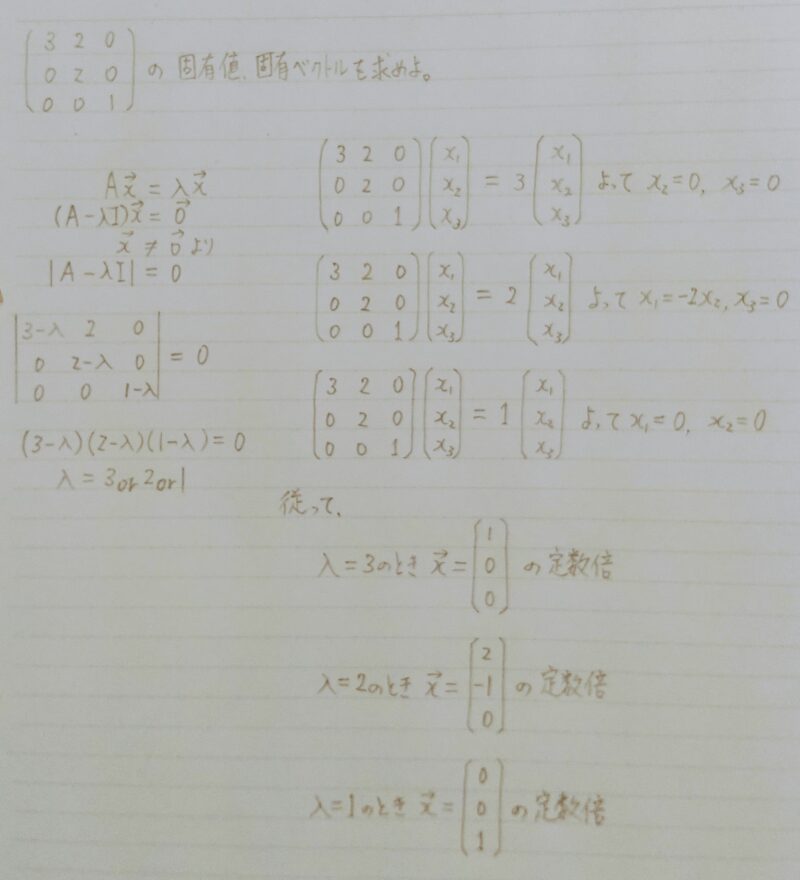 (3 2 0
0 2 0
0 0 1) の 固有値、固有ベクトルを求めよ。
Ax⃗ = λx⃗
(A-λI)x⃗ = 0⃗
x⃗ ≠ 0⃗ より
|A-λI| = 0
|3-λ 2 0
0 2-λ 0
0 0 1-λ| = 0
(3-λ)(2-λ)(1-λ) = 0
λ = 3 or 2 or 1
(3 2 0
0 2 0
0 0 1)(x₁
x₂
x₃) = 3(x₁
x₂
x₃) よって x₂=0, x₃=0
(3 2 0
0 2 0
0 0 1)(x₁
x₂
x₃) = 2(x₁
x₂
x₃) よって x₁=-2x₂, x₃=0
(3 2 0
0 2 0
0 0 1)(x₁
x₂
x₃) = 1(x₁
x₂
x₃) よって x₁=0, x₂=0
従って、
λ=3のとき x⃗=(1
0
0) の定数倍
λ=2のとき x⃗=(2
-1
0) の定数倍
λ=1のとき x⃗=(0
0
1) の定数倍